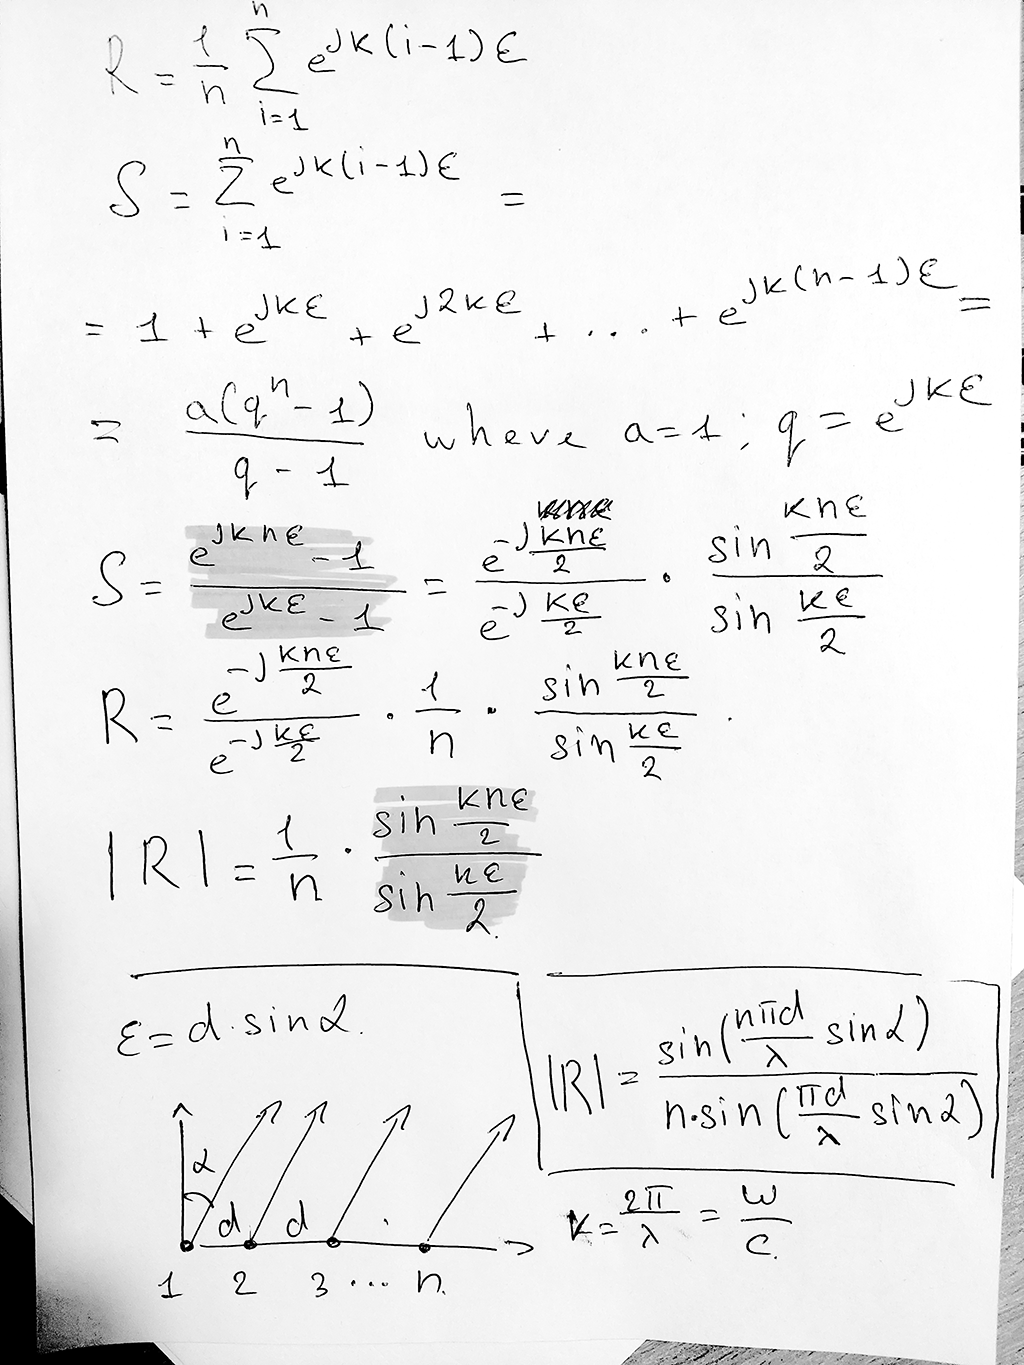 R = 1/n ∑_{i=1}^{n} e^{jk(i-1)ε}
S = ∑_{i=1}^{n} e^{jk(i-1)ε} =
= 1 + e^{jkε} + e^{j2kε} + .... + e^{jk(n-1)ε} =
= a(q^n - 1)/(q - 1) where a=1; q = e^{jkε}
S = (e^{jknε} - 1)/(e^{jkε} - 1) = e^{-j knε/2}/e^{-j kε/2} · sin knε/2 / sin kε/2
R = e^{-j knε/2}/e^{-j kε/2} · 1/n · sin knε/2 / sin kε/2
|R| = 1/n · sin knε/2 / sin kε/2
ε = d·sinα
|R| = sin(nπd/λ sinα) / n·sin(πd/λ sinα)
α
d d
1 2 3 ... n
k = 2π/λ = ω/c